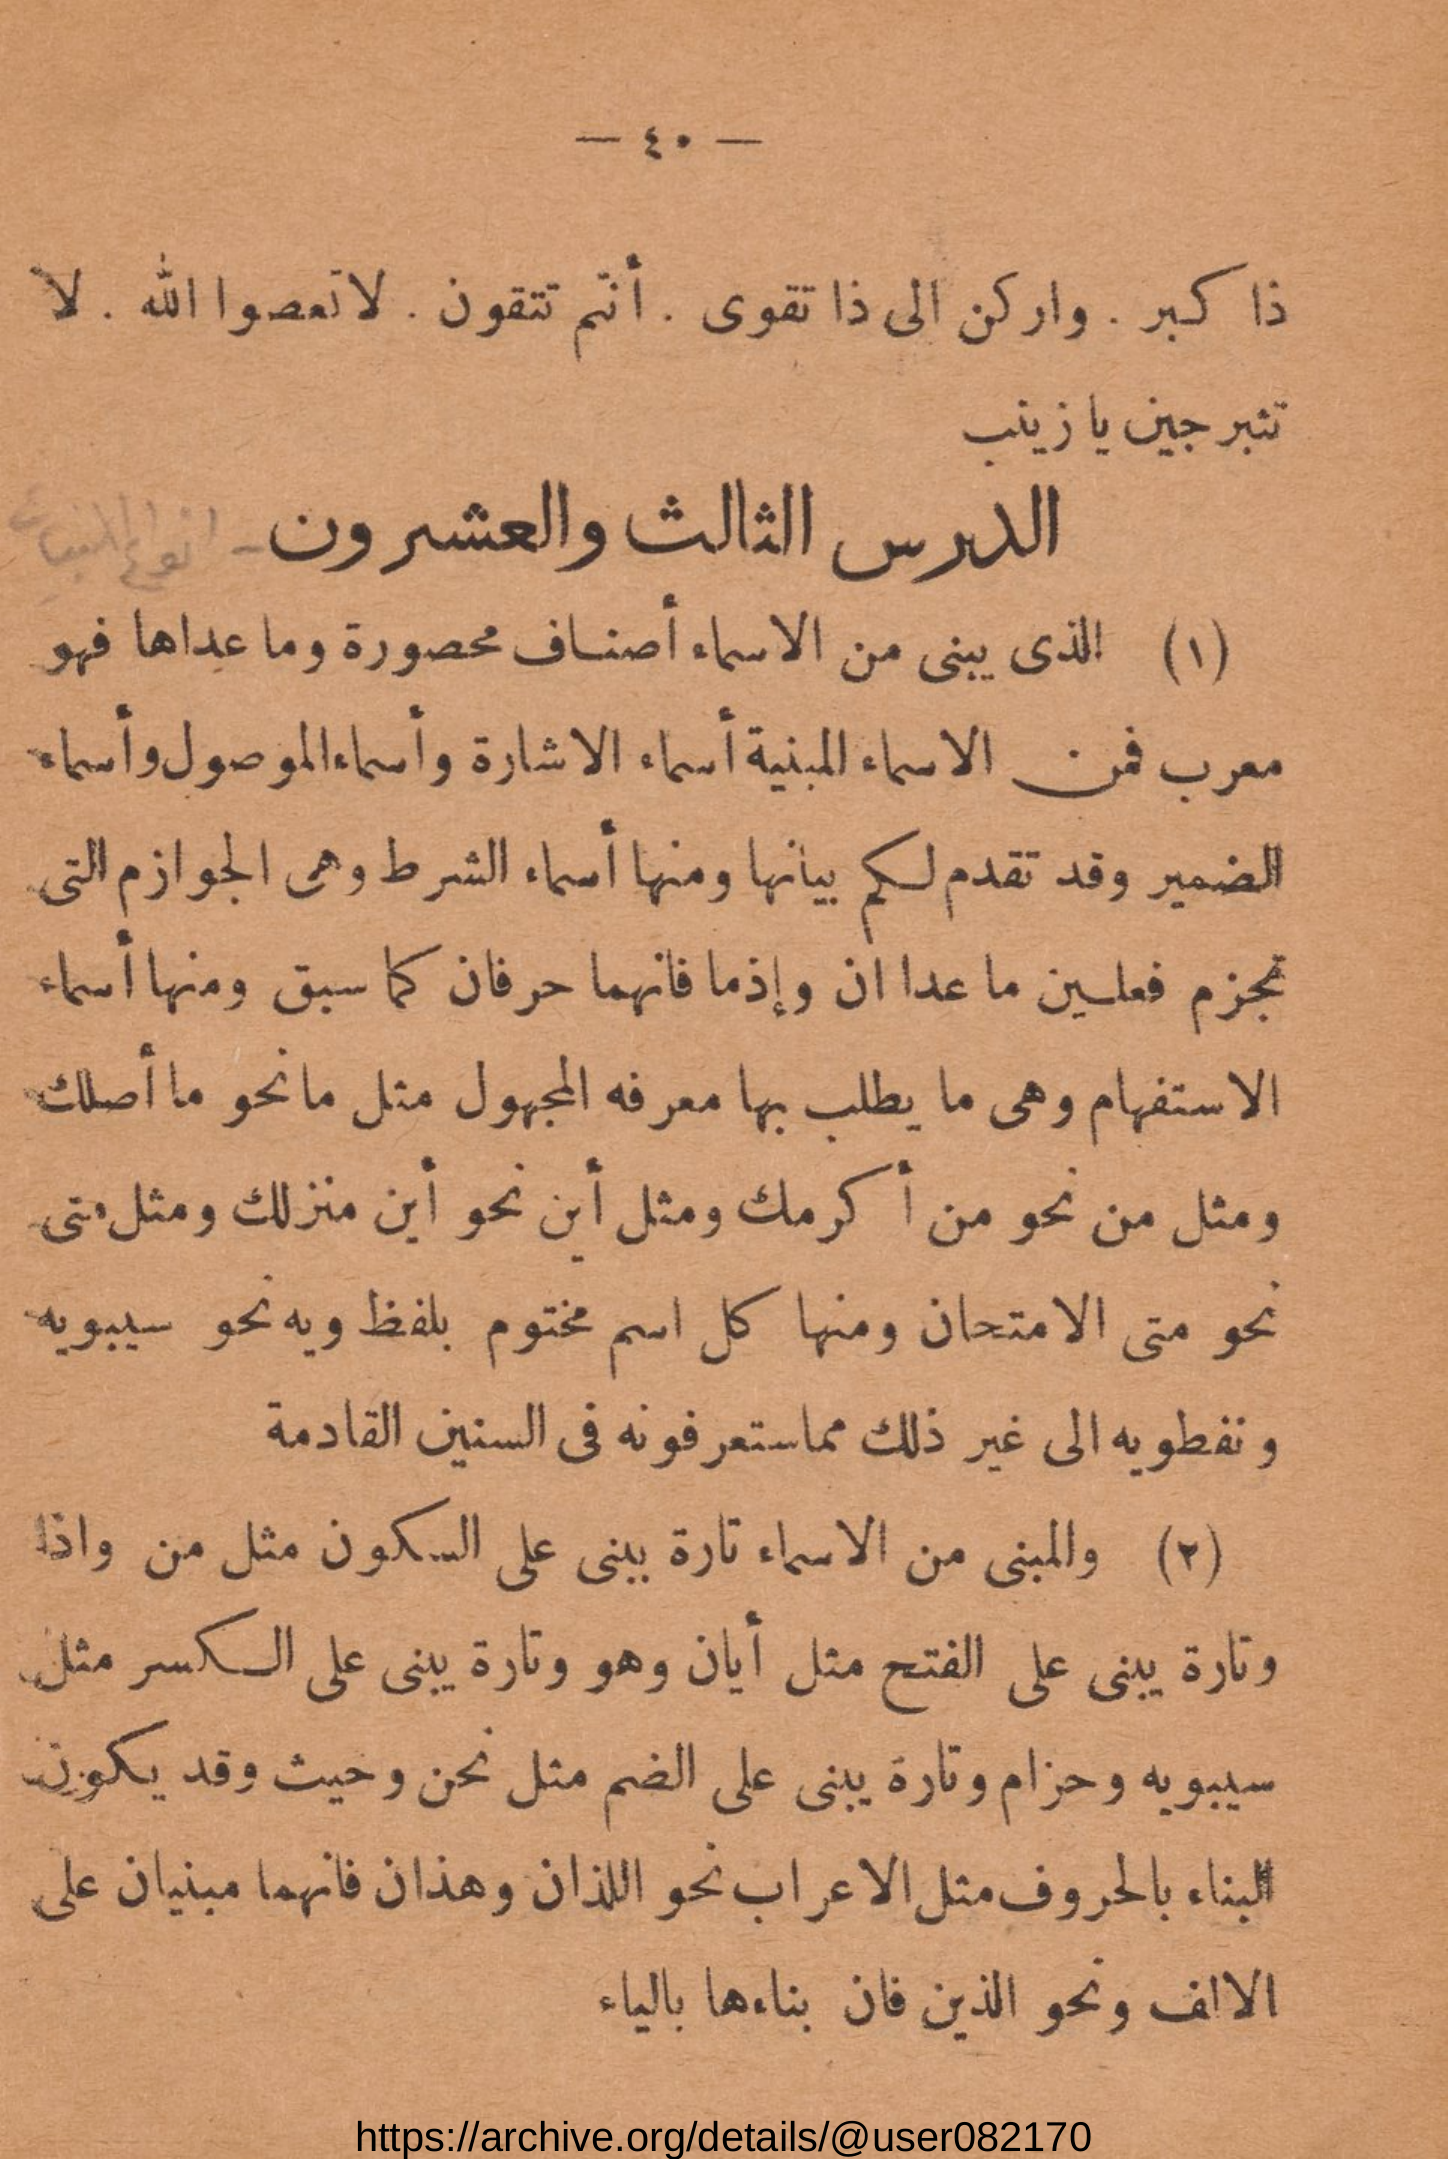 — ٤٠ —
ذا كبر . واركن الى ذا تقوى . أنتم تتقون . لا تعصوا الله . لا
تثبرجين يا زينب
الدرس الثالث والعشرون - انواع المبنيات
(١) الذى يبنى من الاسماء أصناف محصورة وما عداها فهو
معرب فمن الاسماء المبنية أسماء الاشارة وأسماء الموصول وأسماء
الضمير وقد تقدم لكم بيانها ومنها أسماء الشرط وهى الجوازم التى
تجزم فعلين ما عدا ان وإذما فانهما حرفان كما سبق ومنها أسماء
الاستفهام وهى ما يطلب بها معرفه المجهول مثل ما نحو ما أصلك
ومثل من نحو من أكرمك ومثل أين نحو أين منزلك ومثل متى
نحو متى الامتحان ومنها كل اسم مختوم بلفظ ويه نحو سيبويه
ونفطويه الى غير ذلك مما ستعرفونه فى السنين القادمة
(٢) والمبنى من الاسماء تارة يبنى على السكون مثل من واذا
وتارة يبنى على الفتح مثل أيان وهو وتارة يبنى على الكسر مثل
سيبويه وحزام وتارة يبنى على الضم مثل نحن وحيث وقد يكون
البناء بالحروف مثل الاعراب نحو اللذان وهذان فانهما مبنيان على
الالف ونحو الذين فان بناءها بالياء
https://archive.org/details/@user082170